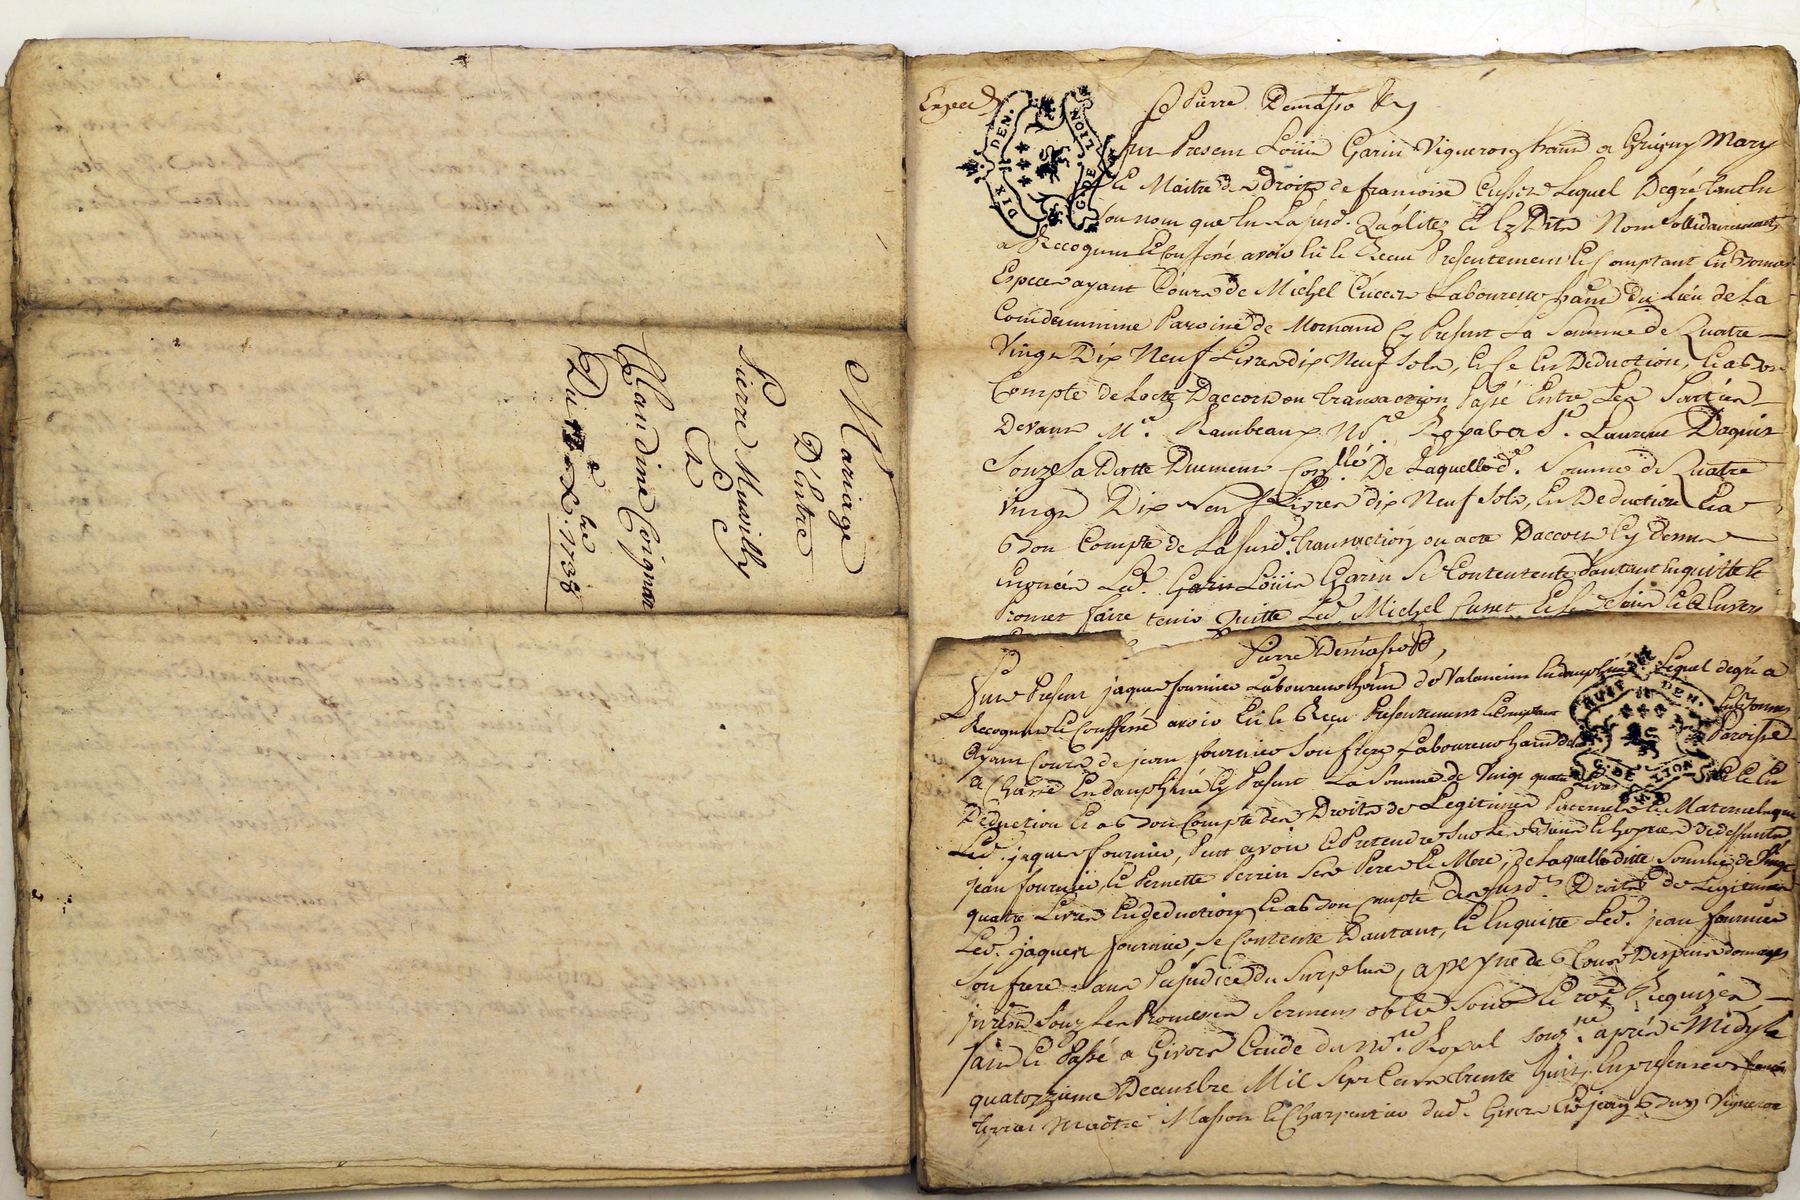 Mariage
D'Entre
Pierre Muvilly
Et
Claudine Coignar
Du Xbre 1738
Exped
Pierre Demasso
DIX DEN.
G. DE LION
Fut Present Loüis Garin Vigneron habitt a Grigny Mary
Et Maitre des Droits de francoise Cusset Lequel Degré tant En
son nom que En La susd. Qualité Et Esdits Noms sollidairement
a Recognu Et Confessé avoir Eü Et Receu Presentement Et Comptant En Bonnes
Especes ayant Cours de Michel Cusset Laboureur habitt du Lieu de La
Condamine Paroisse de Mornand Cy Present La Somme de Quatre
Vingt Dix Neuf Livres dix Neuf sols, Et Ce En Deduction, Et a Bon
Compte de Lacte Daccord ou transaction Passé Entre Les Parties
Devant Me. Rambeaux Nore. Royal Laurent Daguis
Souz Sa Datte Duement Conllé. De Laquelle d. Somme de Quatre
Vingt Dix Neuf Livres dix Neuf Sols, En Deduction Et a
Bon Compte de La susd. transaction ou acte Daccord Cy dessus
Enoncée Led. Loüis Garin Se Contente d'autant Enquitte Et
Promet faire tenir Quitte Led. Michel Cusset Et Les Siens Et Envers
Pierre Demasso
Fut Present jaques fournier Laboureur habitt de Valencin En dauphiné Lequel degré a
Recognu Et Confessé avoir Eü Et Receu Presentement Et Comptant En Bonnes
HUIT DEN.
G. DE LION
Ayant Cours de jean fournier Son frere Laboureur habitt de La Paroisse
de Chasse En dauphiné Cy Present La Somme de Vingt quatre Livres Et Ce En
Deduction Et a Bon Compte des Droits de Legitimes Paternels Et Maternels que
Led. jaques fournier, Peut avoir Et Pretendre Sur Les Biens Et hoiries de deffunts
jean fournier, Et Pernette Perrin Ses Pere Et Mere, de Laquelle ditte Somme de Vingt
quatre Livres En deduction Et a Bon Compte des susds. Droits de Legitimes
Led. jaques fournier, Se Contente Dautant, Et Enquitte Led. jean fournier
Son frere Sans Prejudice du Surplus, a peyne de tous Despens domages
Souz Les Promesses Sermens oblions Soum Et Requizes
fait Et Passé a Givors Etude du Nore. Royal Souzné. apres Midy Le
quatorzieme Decembre Mil Sept Cents trente huit, En presence de
Maitre Masson Et Charpentier dud. Givors Et jean Vigneron